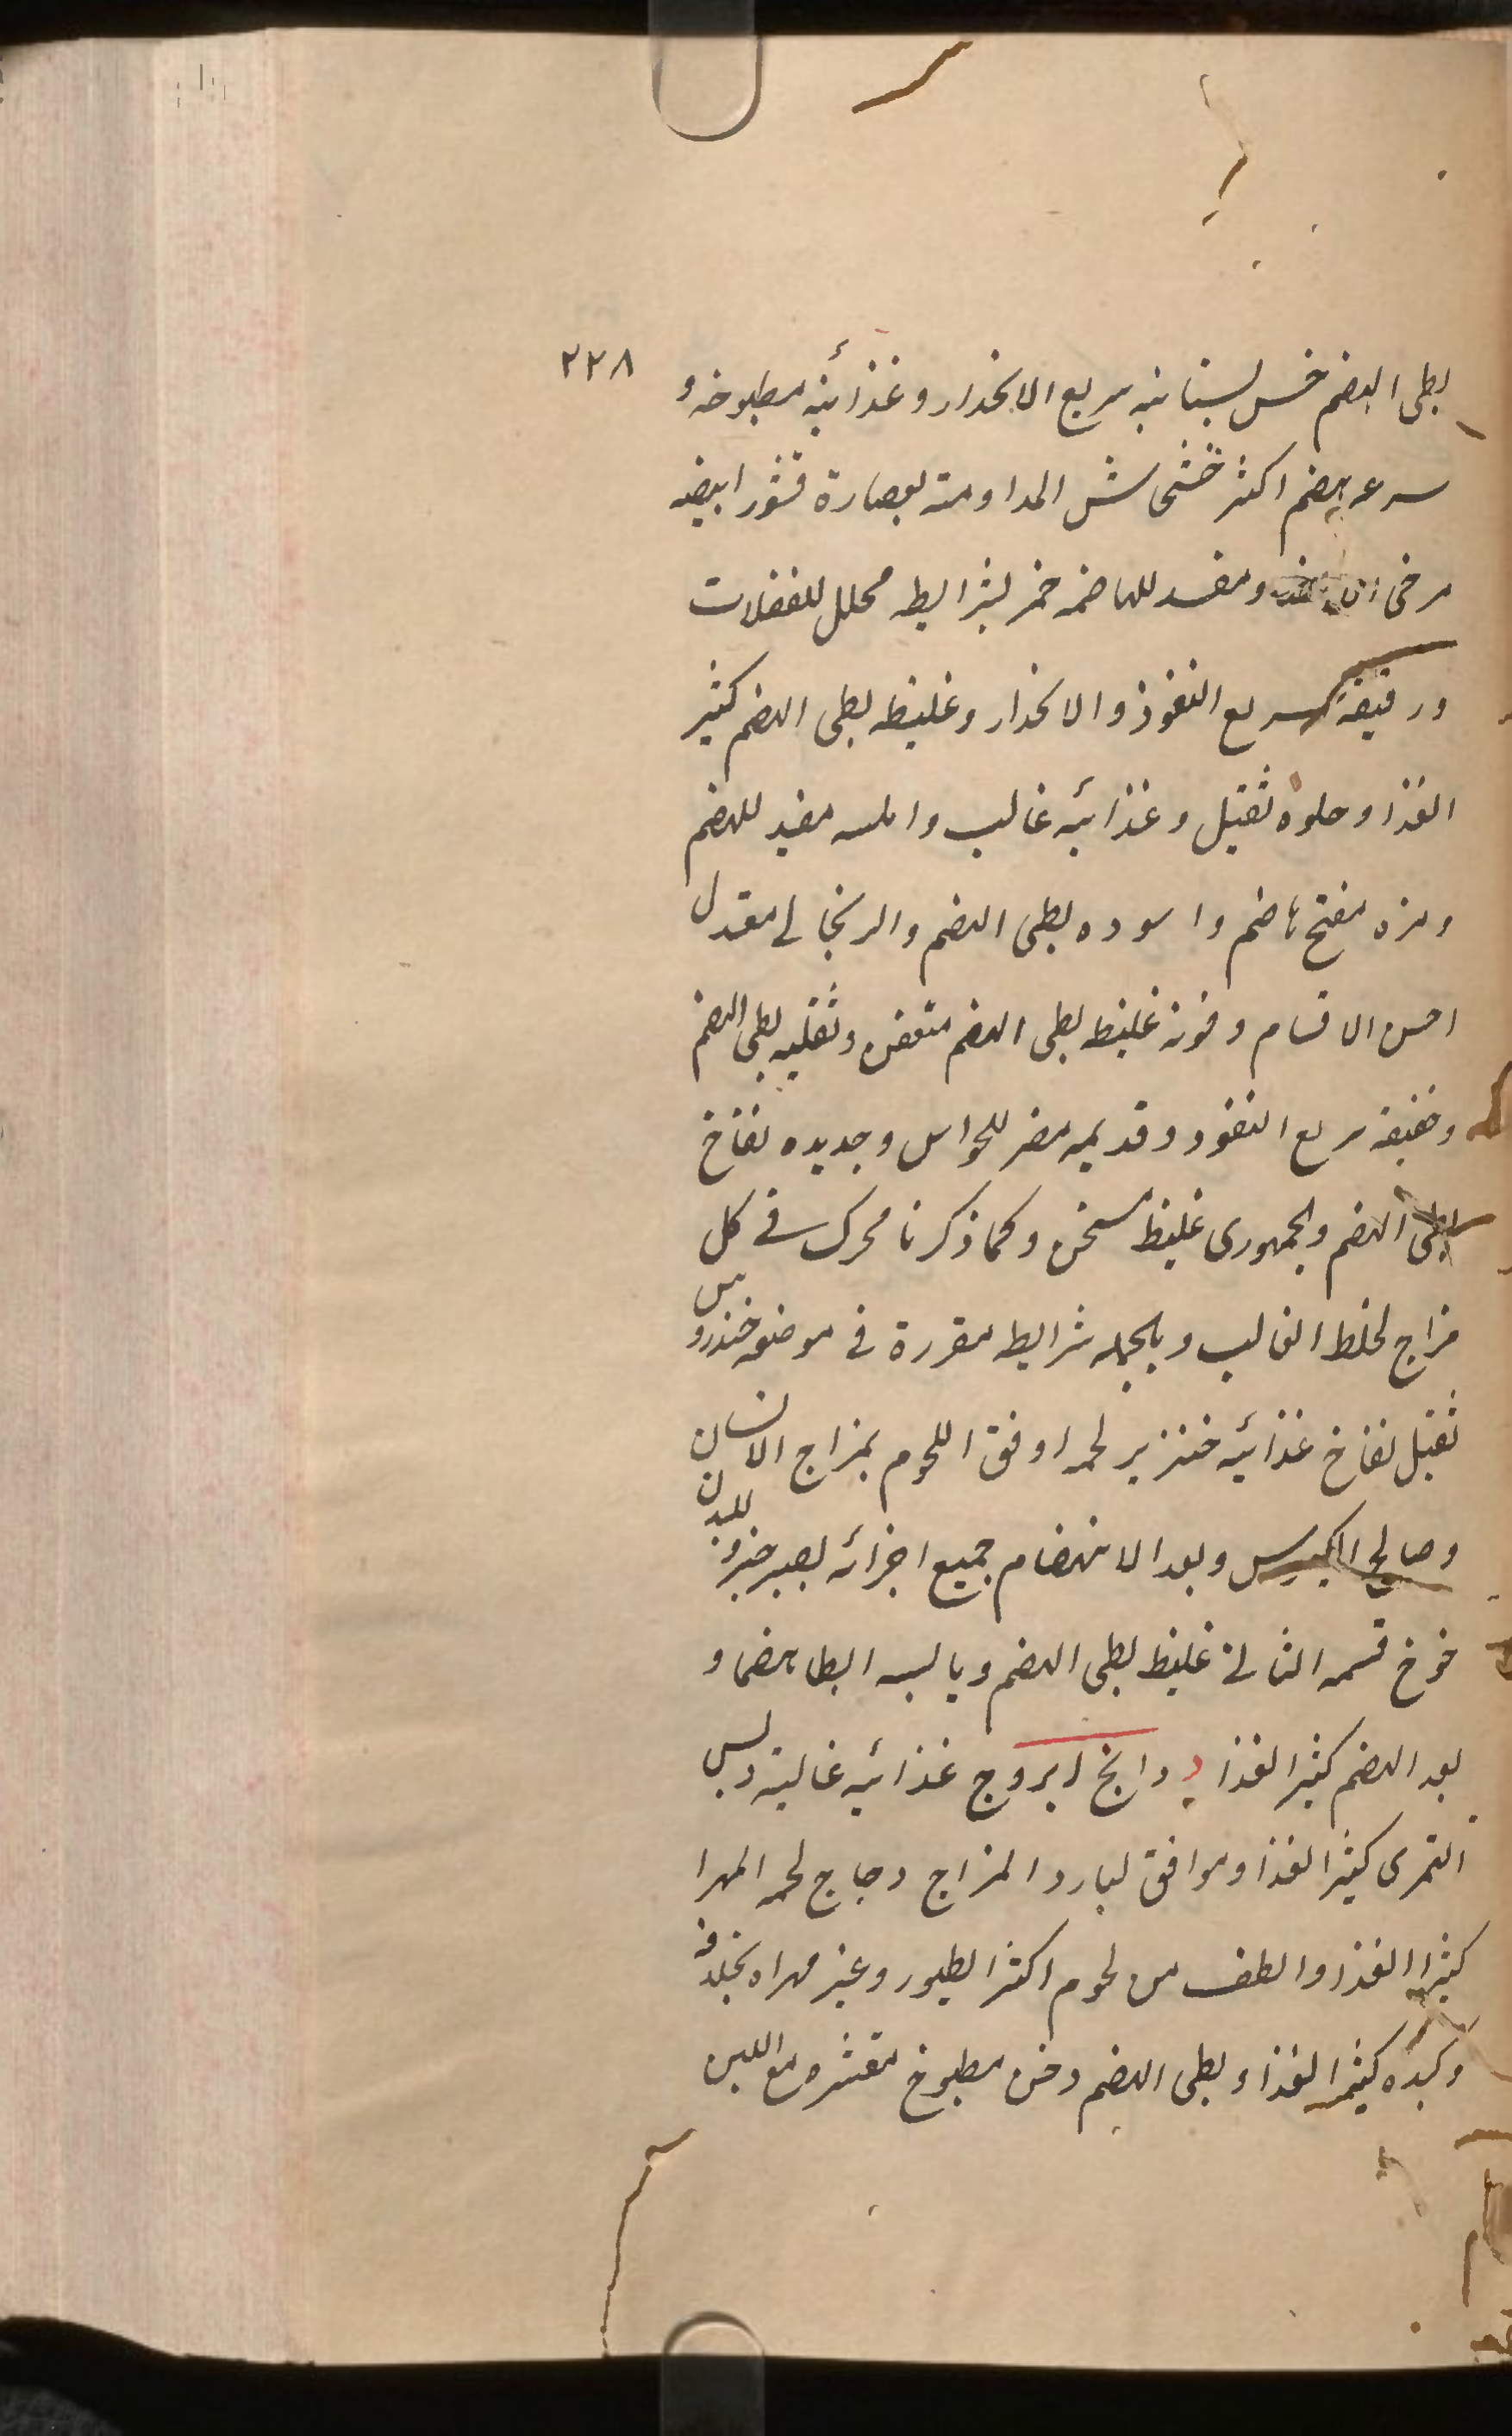 ۲۲۸
بطی الهضم خس بستانیه سریع الانحدار و غذائیه مطبوخه و
سرعه هضم اکثر خشخاش المداومته بعصارة قشور ابیضه
مرخی و مفسد للهاضمه خمر بشرایطه محلل للفضلات
ورقیقه سریع النفوذ والانحدار وغلیظه بطی الهضم کثیر
الغذا وحلوه ثقیل وغذائیه غالب واملسه مفید للهضم
ومزه مفتح هاضم واسوده بطی الهضم والریحانی معتدل
احسن الاقسام وفوته غلیظ بطی الهضم متعفن وثقلیه بطی الهضم
وخفیفه سریع النفوذ وقدیمه مضر للحواس وجدیده نفاخ
بطی الهضم والجمهوری غلیظ مسخن وکما ذکرنا محرک فی کل
مزاج لخلط الغالب وبالجمله شرایط مقررة فی موضعه خندروس
ثقیل نفاخ غذائیه خنزیر لحمه اوفق اللحوم بمزاج الانسان
وصالح الکیموس وبعد الانهضام جمیع اجزائه یصیر جزو للبدن
خوخ قسمه الثانی غلیظ بطی الهضم ویابسه ابطا هضما و
بعد الهضم کثیر الغذا د دانج ابروج غذائیه غالیة دبس
التمری کثیر الغذا وموافق لبارد المزاج دجاج لحمه المهرا
کثیر الغذا والطف من لحوم اکثر الطیور وغیر مهراه بخلافه
وکبده کثیر الغذا وبطی الهضم دخن مطبوخ مقشره مع اللبن